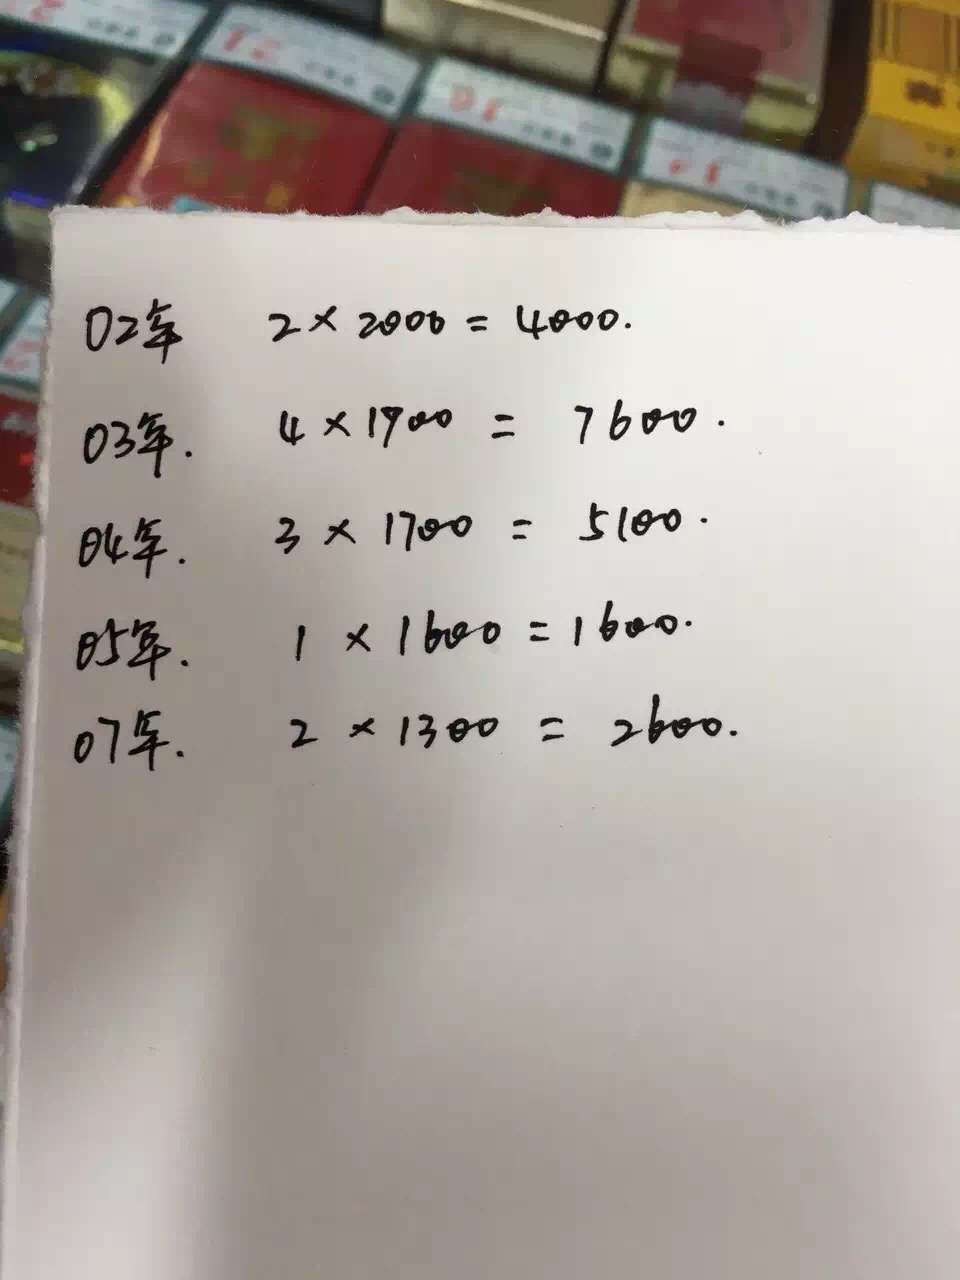 02年 2×2000=4000.
03年. 4×1900=7600.
04年. 3×1700=5100.
05年. 1×1600=1600.
07年. 2×1300=2600.